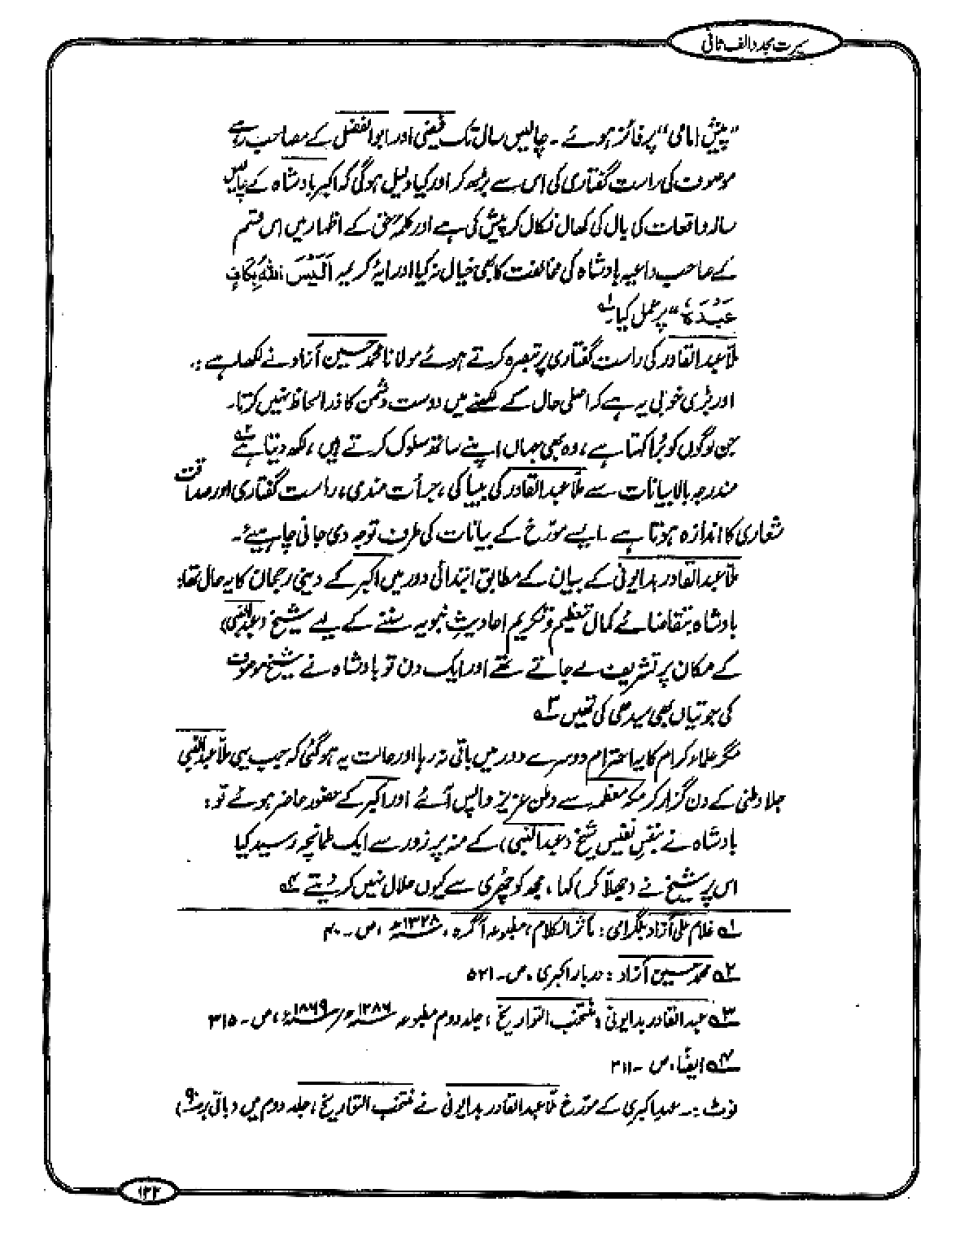 سیرت مجدد الف ثانی
"پیش امامی" پر فائز ہوئے ۔ چالیس سال تک فیضی اور ابوالفضل کے مصاحب رہے
موصوف کی راست گفتاری کی اس سے بڑھ کر اور کیا دلیل ہوگی کہ اکبر بادشاہ کے چالیس
سالہ واقعات کی بال کی کھال نکال کر پیش کی ہے اور کلمۂ حق کے اظہار میں اس قسم
کے صاحب داعیہ بادشاہ کی مخالفت کا بھی خیال نہ کیا اور ایۂ کریمہ اَلَیْسَ اللہُ بِکَافٍ
عَبْدَہٗ" پر عمل کیا ۱؎
ملّا عبدالقادر کی راست گفتاری پر تبصرہ کرتے ہوئے مولانا محمد حسین آزاد نے لکھا ہے :۔
اور بڑی خوبی یہ ہے کہ اصلی حال کے لکھنے میں دوست دشمن کا ذرا لحاظ نہیں کرتا۔
جن لوگوں کو بُرا کہتا ہے ، وہ بھی جہاں اپنے ساتھ سلوک کرتے ہیں ، لکھ دیتا ہے ۲؎
مندرجہ بالا بیانات سے ملّا عبدالقادر کی بیباکی ، جرأت مندی ، راست گفتاری اور صداقت
شعاری کا اندازہ ہوتا ہے ۔ ایسے مورّخ کے بیانات کی طرف توجہ دی جانی چاہیئے ۔
ملّا عبدالقادر بدایونی کے بیان کے مطابق ابتدائی دور میں اکبر کے دینی رجحان کا یہ حال تھا:
بادشاہ بتقاضائے کمال تعظیم و تکریم احادیثِ نبویہ سننے کے لیے شیخ (عبدالنبی)
کے مکان پر تشریف لے جاتے تھے اور ایک دن تو بادشاہ نے شیخ موصوف
کی جوتیاں بھی سیدھی کی تھیں ۳؎
مگر علماء کرام کا یہ احترام دوسرے دور میں باقی نہ رہا اور حالت یہ ہوگئی کہ جب یہی ملّا عبدالنبی
جلاوطنی کے دن گزار کر مکہ معظمہ سے وطن عزیز واپس آئے اور اکبر کے حضور حاضر ہوئے تو :
بادشاہ نے بنفس نفیس شیخ (عبدالنبی) کے منہ پر زور سے ایک طمانچہ رسید کیا
اس پر شیخ نے (جھلّا کر) کہا ، مجھ کو چھری سے کیوں حلال نہیں کر دیتے ۴؎
۱؎ غلام علی آزاد بلگرامی : مآثر الکلام ، مطبوعہ آگرہ ، ۱۳۲۸ھ ، ص ۔ ۴۰
۲؎ محمد حسین آزاد : دربار اکبری ، ص ۔ ۵۲۱
۳؎ عبدالقادر بدایونی : منتخب التواریخ ، جلد دوم مطبوعہ ۱۲۸۶ھ / ۱۸۶۹ء ، ص ۔ ۳۱۵
۴؎ ایضاً ، ص ۔ ۳۱۱
نوٹ :۔ عہد اکبری کے مورّخ ملّا عبدالقادر بدایونی نے منتخب التواریخ ، جلد دوم میں (باقی بر
۱۲۲